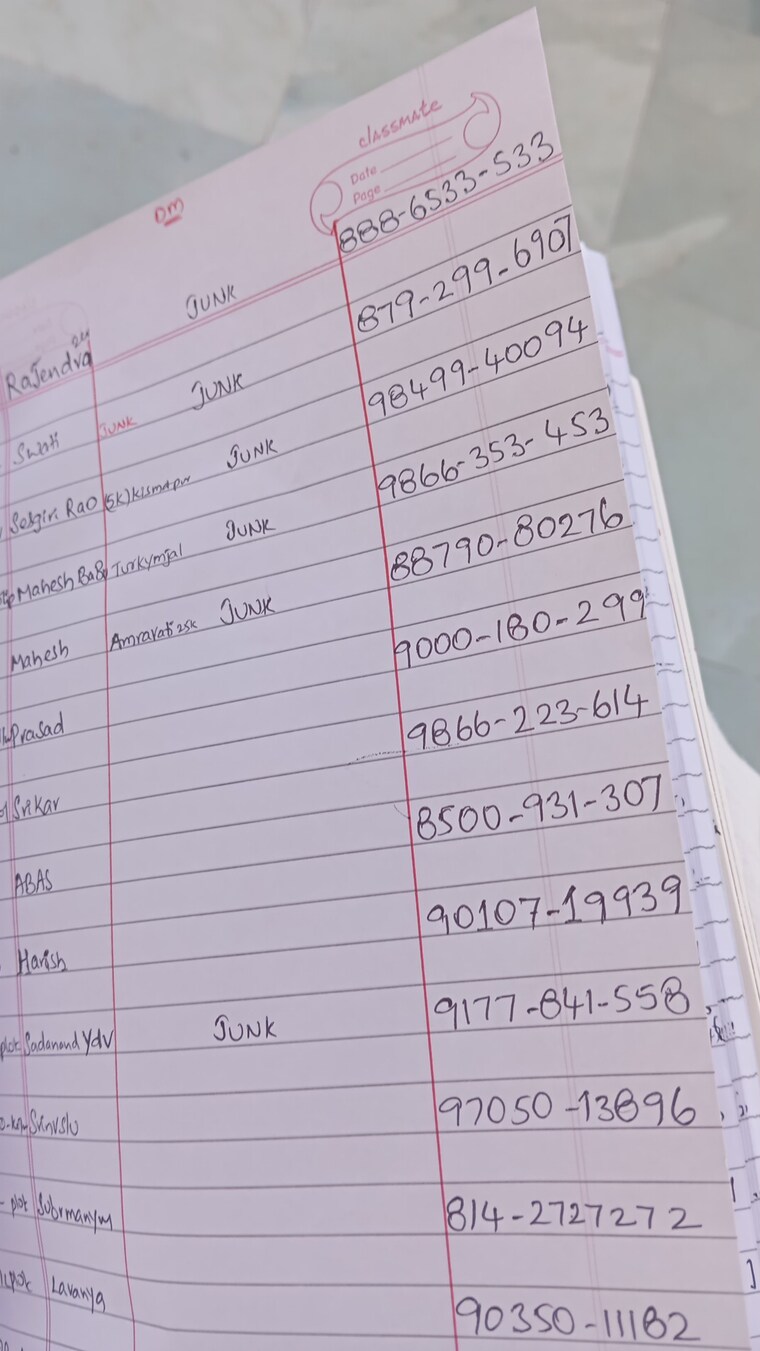 classmate
Date
Page
DM
JUNK 888-6533-533
Rajendra JUNK 879-299-6907
Swati JUNK JUNK 98499-40094
Sesgiri Rao (5K) kismatpur JUNK 9866-353-453
Mahesh Babu Turkymjal JUNK 88790-80276
Mahesh Amravati 25k JUNK 9000-180-299
Prasad 9866-223-614
Srikar 8500-931-307
ABAS 90107-19939
Harish 9177-841-558
plot Sadanand Ydv JUNK 97050-13896
Srnvslu 814-2727272
plot Subrmanym 90350-11182
plot Lavanya